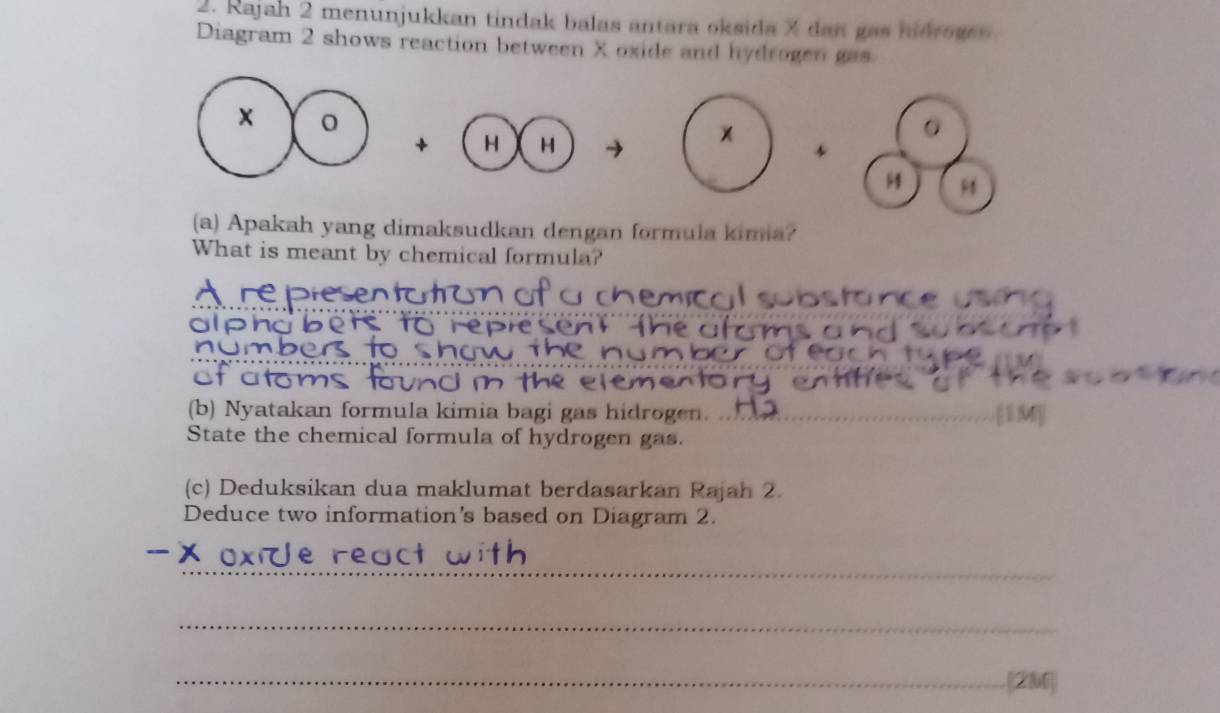 2. Rajah 2 menunjukkan tindak balas antara oksida X dan gas hidrogen.
Diagram 2 shows reaction between X oxide and hydrogen gas.
X O + H H → X + O H H
(a) Apakah yang dimaksudkan dengan formula kimia?
What is meant by chemical formula?
A representation of a chemical substance using
alphabets to represent the atoms and subscript
numbers to show the number of each type [1M]
of atoms found in the elementary entities of the
(b) Nyatakan formula kimia bagi gas hidrogen. H2 [1M]
State the chemical formula of hydrogen gas.
(c) Deduksikan dua maklumat berdasarkan Rajah 2.
Deduce two information's based on Diagram 2.
- X oxide react with
[2M]